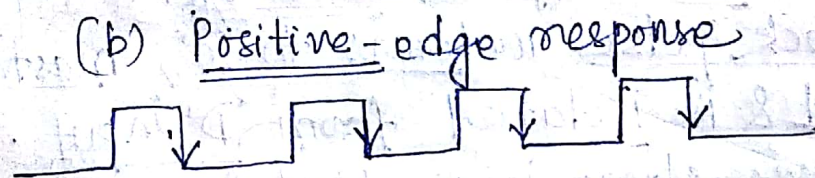 (b) Positive-edge response